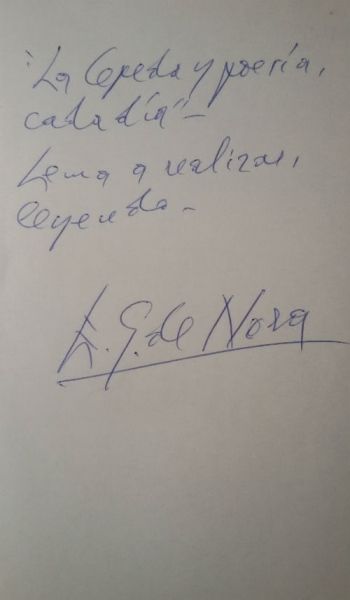 "La Cepeda y poesía,
cada día" –
Lema a realizar,
leyendo –
E. G. de Nora